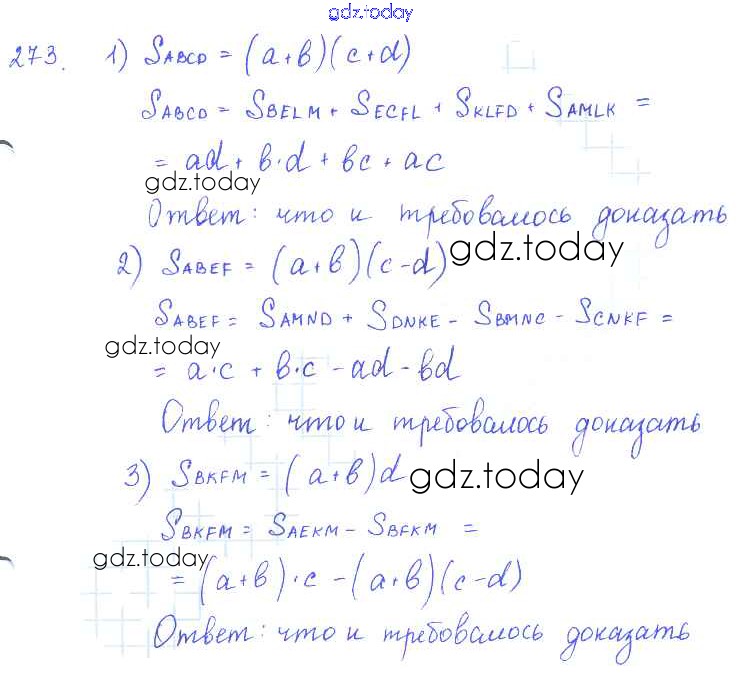 gdz.today
273. 1) SABCD = (a+b)(c+d)
SABCD = SBELM + SECFL + SKLFD + SAMLK =
= ad + b·d + bc + ac
gdz.today
Ответ: что и требовалось доказать
2) SABEF = (a+b)(c-d) gdz.today
SABEF = SAMND + SDNKE - SBMNC - SCNKF =
gdz.today
= a·c + b·c - ad - bd
Ответ: что и требовалось доказать
3) SBKFM = (a+b)d gdz.today
SBKFM = SAEKM - SBFKM =
gdz.today
= (a+b)·c - (a+b)(c-d)
Ответ: что и требовалось доказать